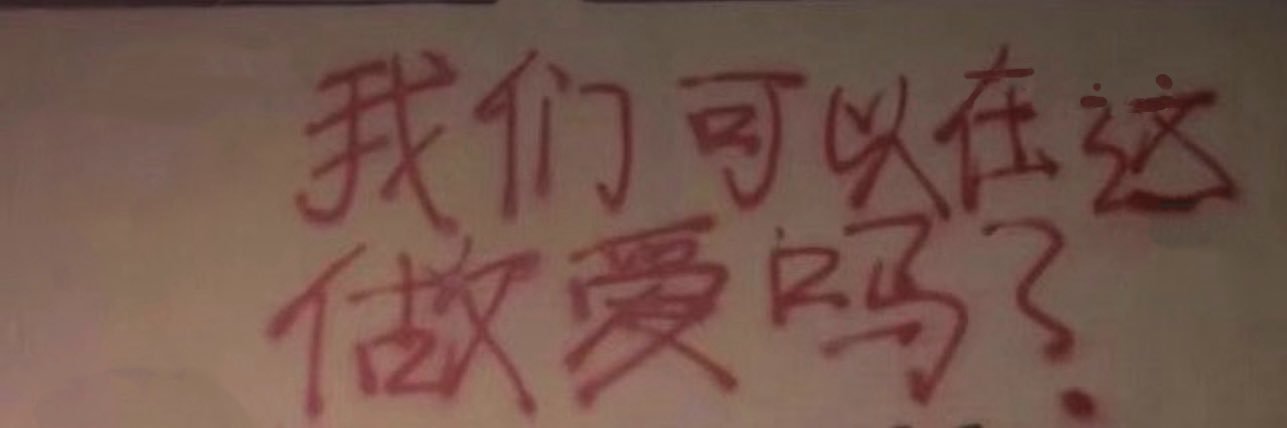 我们可以在这
做爱吗?